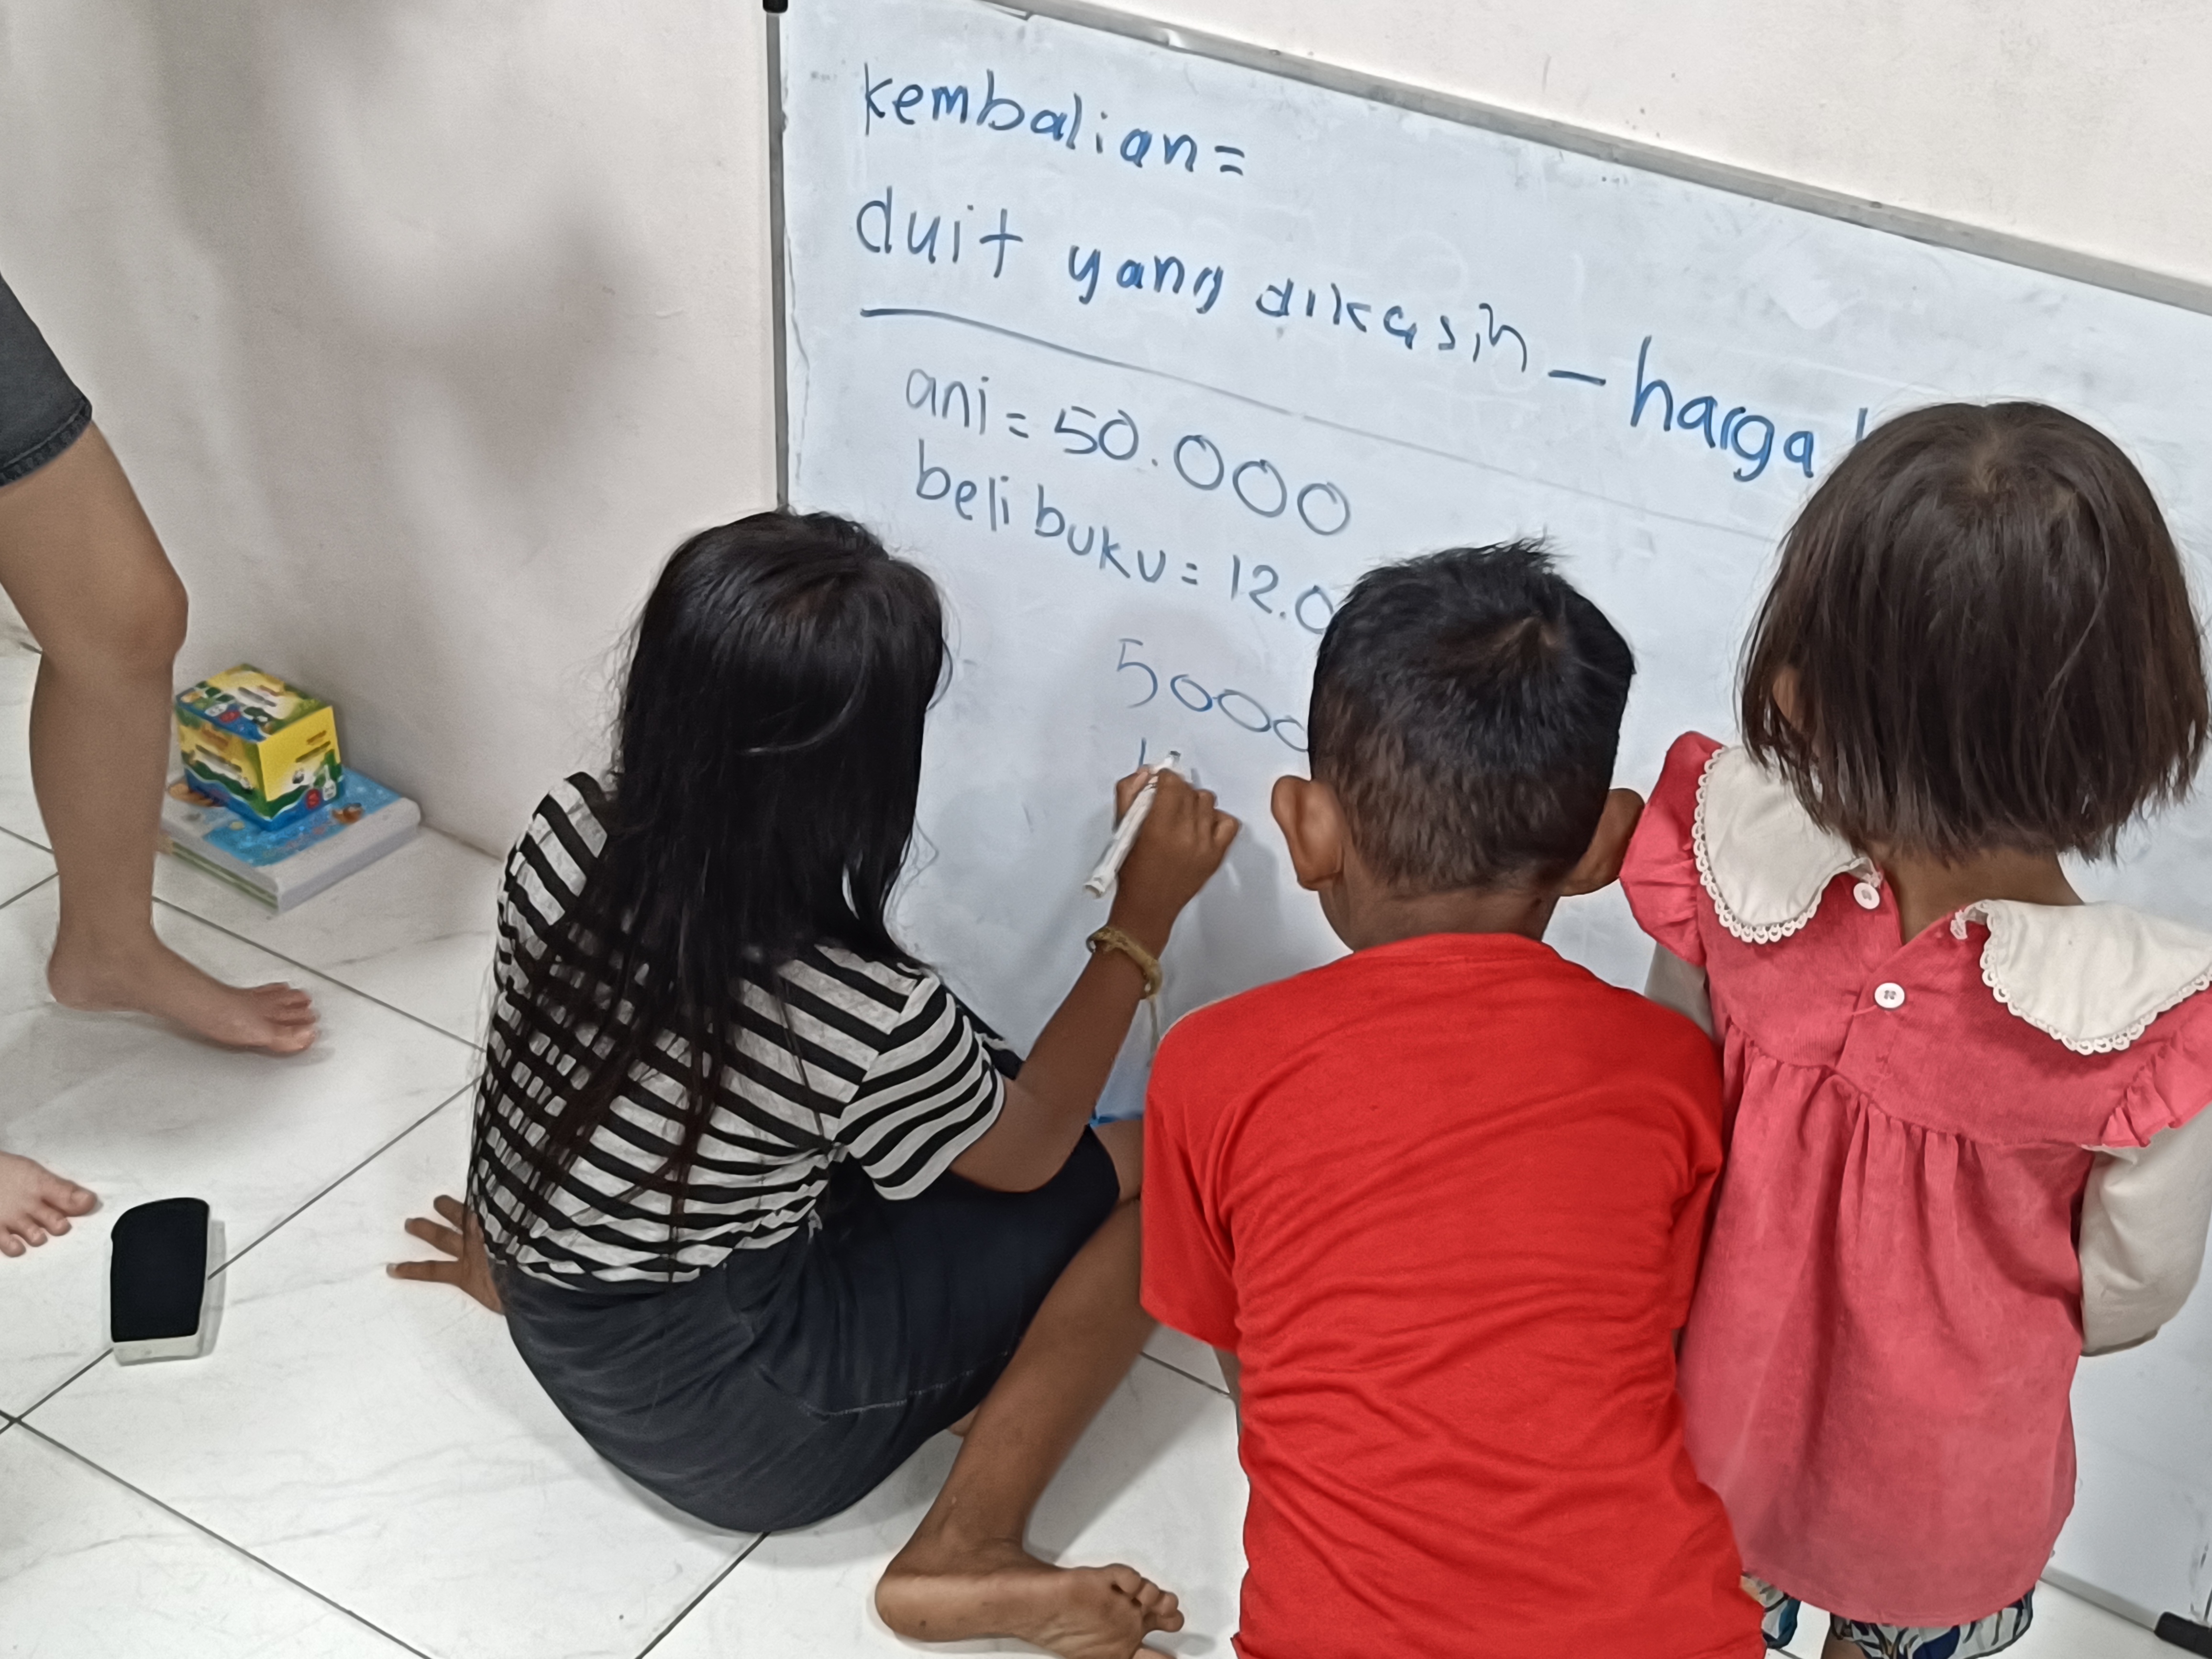 kembalian =
duit yang dikasih - harga
ani = 50.000
beli buku = 12.0
5000